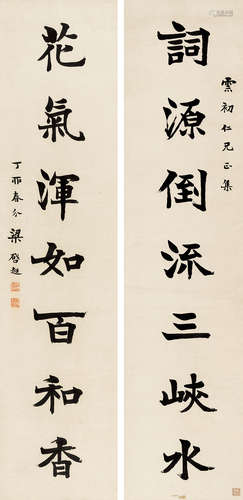 雲初仁兄正集
詞源倒流三峽水
花氣渾如百和香
丁卯春分 梁啓超